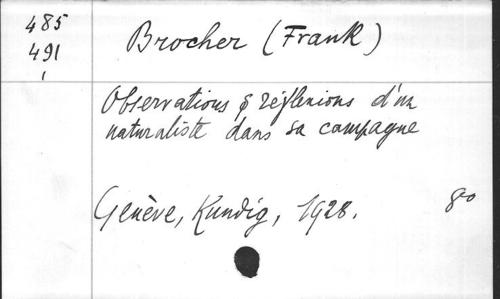 485
491
Brocher (Frank)
Observations & réflexions d'un
naturaliste dans sa campagne
Genève, Kundig, 1928.
8o